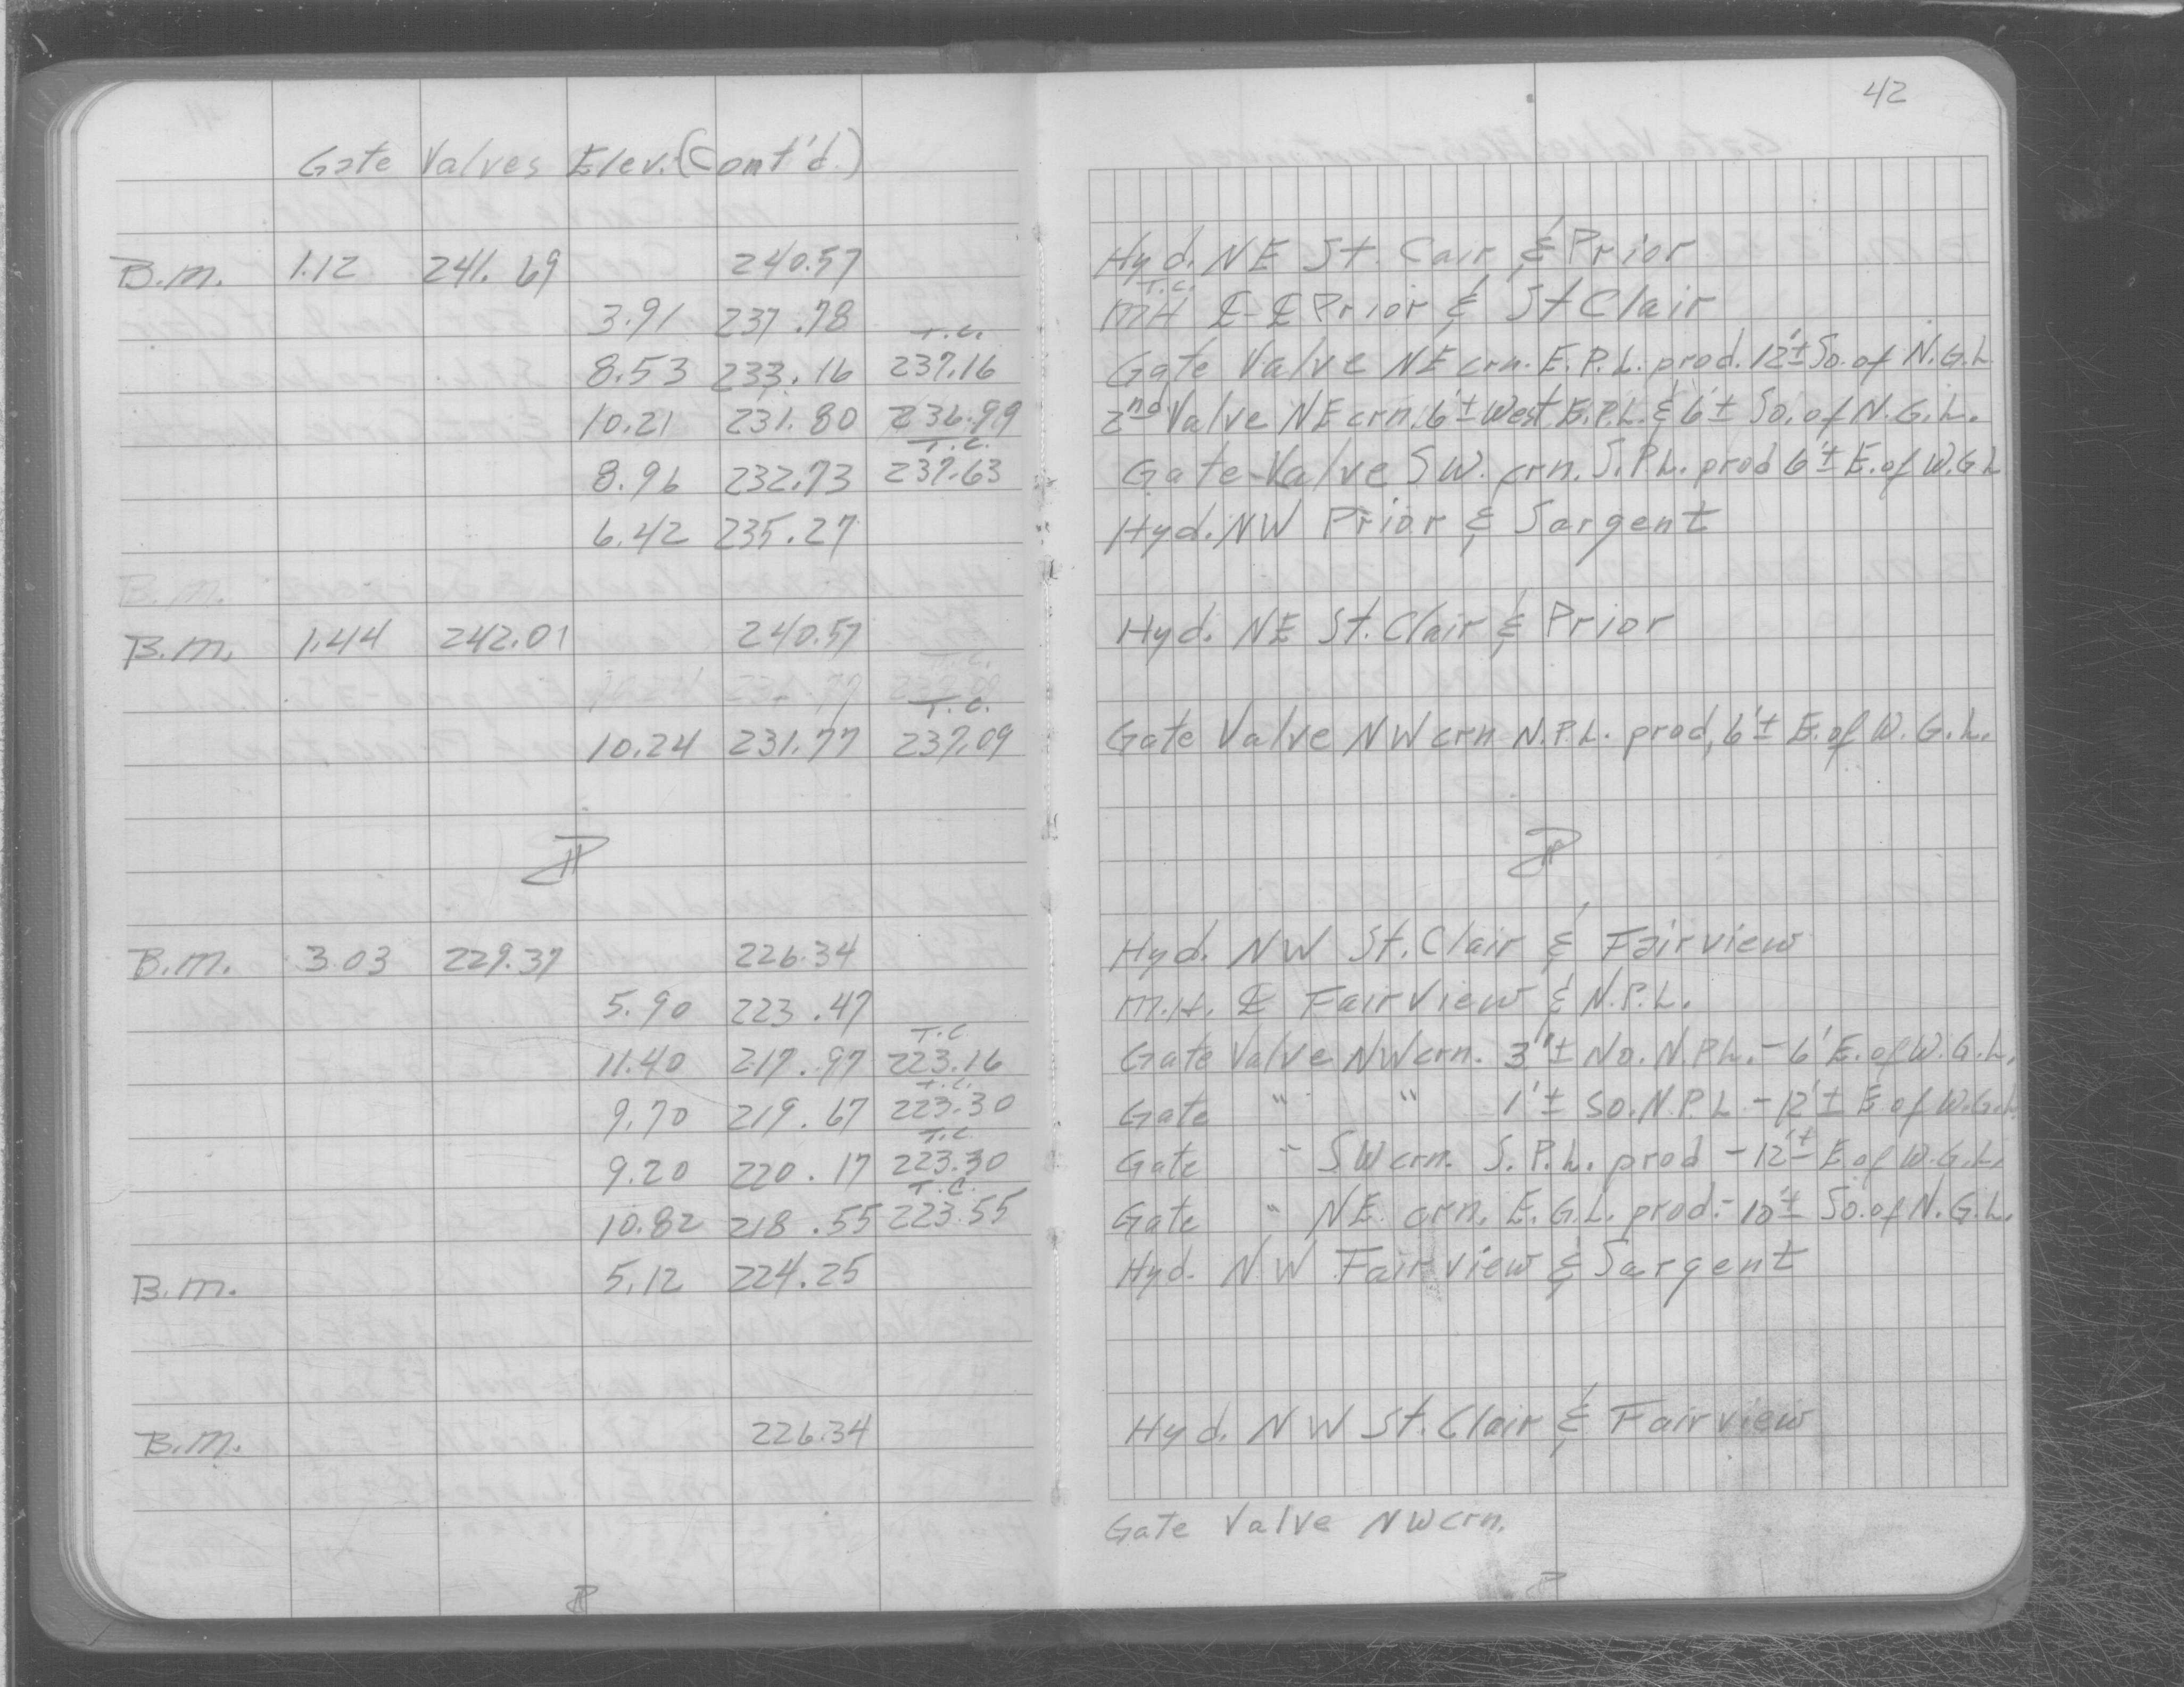 42
Gate Valves Elev. (Cont'd.)
B.M. 1.12 241.69 240.57 Hyd. NE St. Cair & Prior
3.91 237.78 T.C. MH ℄-℄ Prior & St Clair
T.C.
8.53 233.16 237.16 Gate Valve NE crn. E.P.L. prod. 12'± So. of N.G.L.
10.21 231.80 236.99 2nd Valve NE crn. 6'± West E.P.L. & 6'± So. of N.G.L.
T.C.
8.96 232.73 237.63 Gate Valve SW. crn. S.P.L. prod 6'± E. of W.G.L
6.42 235.27 Hyd. NW Prior & Sargent
B.M.
B.M. 1.44 242.01 240.57 Hyd. NE St. Clair & Prior
T.C.
10.24 231.77 237.09 Gate Valve NW crn N.P.L. prod, 6'± E. of W.G.L.
B.M. 3.03 229.37 226.34 Hyd. NW St. Clair & Fairview
5.90 223.47 M.H. ℄ Fairview & N.P.L.
T.C.
11.40 217.97 223.16 Gate Valve NW crn. 3"± No. N.P.L. - 6' E. of W.G.L.
T.C.
9.70 219.67 223.30 Gate " " 1'± So. N.P.L - 12'± E of W.G.L.
T.C.
9.20 220.17 223.30 Gate " SW crn. S.P.L. prod - 12'± E of W.G.L.
T.C.
10.82 218.55 223.55 Gate " NE. crn. E.G.L. prod. - 10'± So. of N.G.L.
B.M. 5.12 224.25 Hyd. NW Fairview & Sargent
B.M. 226.34 Hyd. NW St. Clair & Fairview
Gate Valve NW crn.